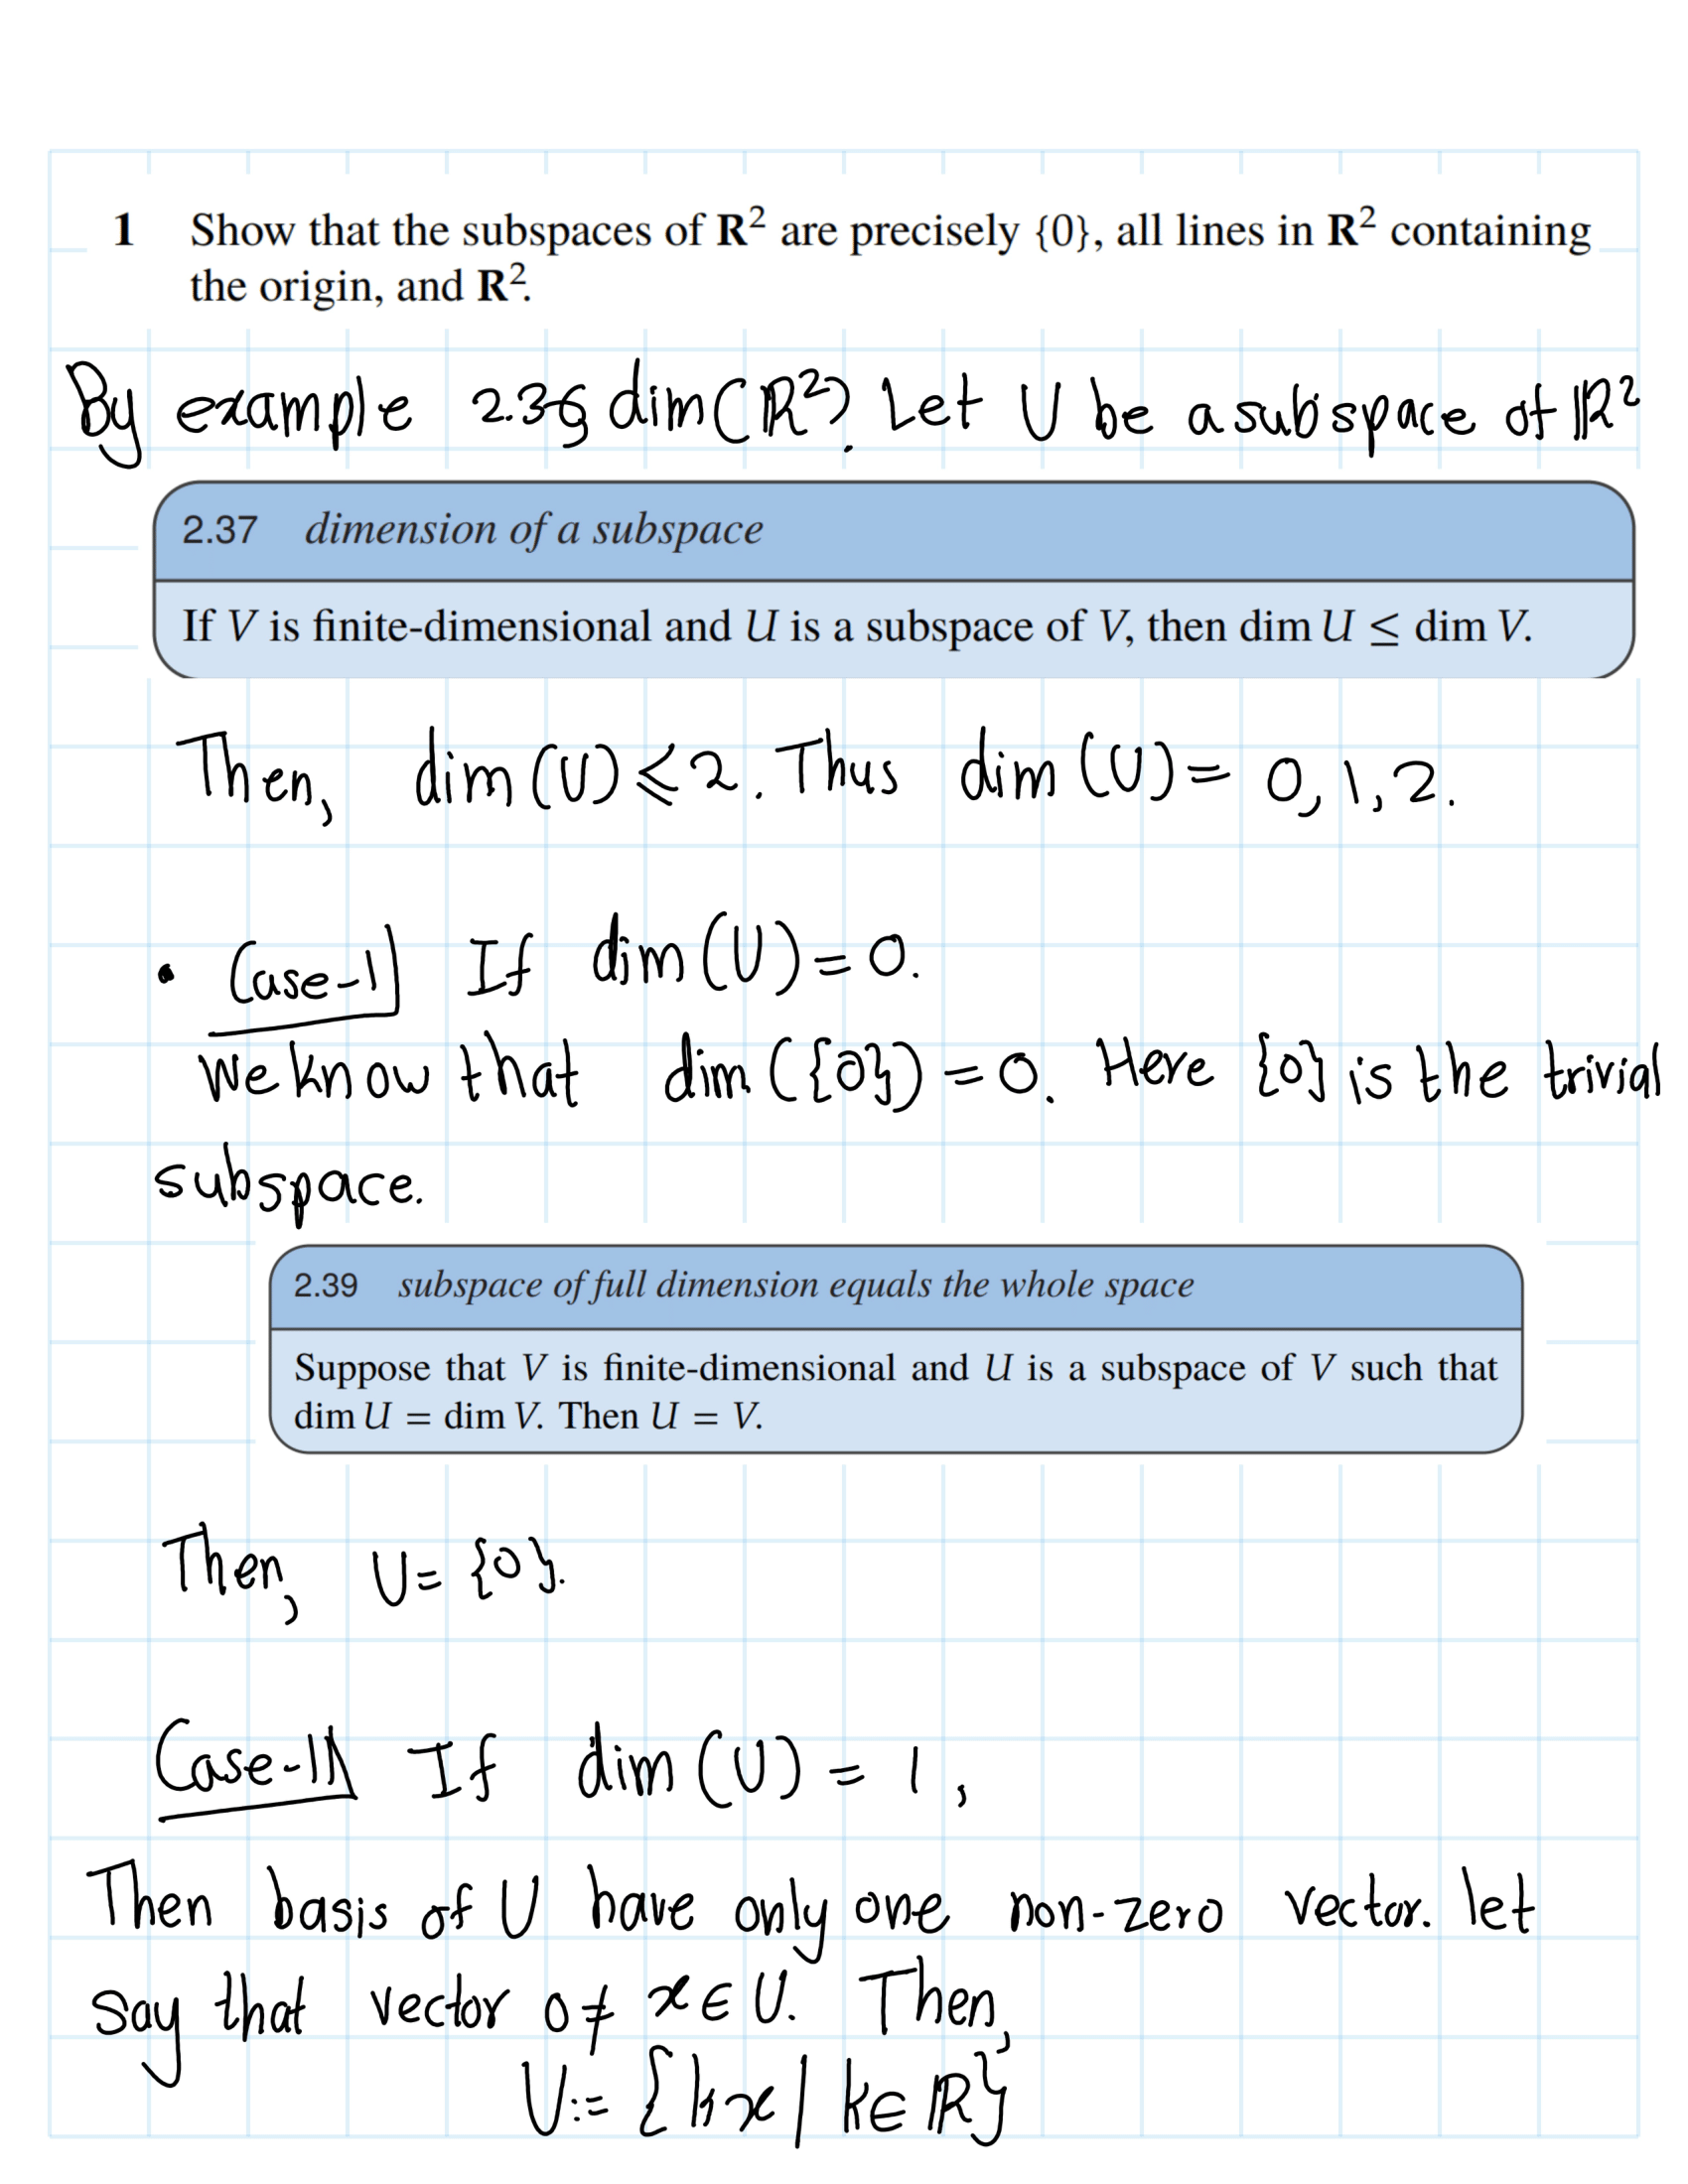 1 Show that the subspaces of R² are precisely {0}, all lines in R² containing
the origin, and R².
By example 2.36 dim(ℝ²). Let U be a subspace of ℝ²
2.37 dimension of a subspace
If V is finite-dimensional and U is a subspace of V, then dim U ≤ dim V.
Then, dim(U) ≤ 2. Thus dim(U) = 0, 1, 2.
• Case-I] If dim(U) = 0.
We know that dim({0}) = 0. Here {0} is the trivial
subspace.
2.39 subspace of full dimension equals the whole space
Suppose that V is finite-dimensional and U is a subspace of V such that
dim U = dim V. Then U = V.
Then, U = {0}.
Case-II] If dim(U) = 1,
Then basis of U have only one non-zero vector. let
say that vector 0 ≠ x ∈ U. Then,
U := {kx | k ∈ ℝ}